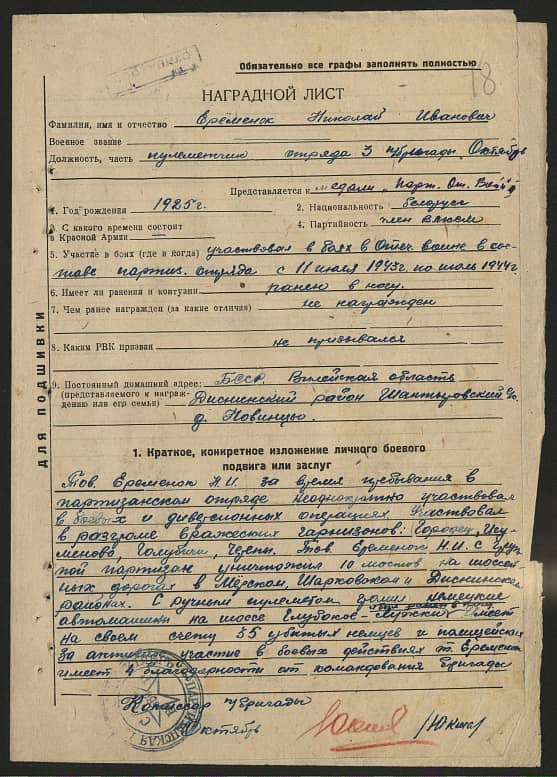 Обязательно все графы заполнять полностью
18
НАГРАДНОЙ ЛИСТ
Фамилия, имя и отчество Еременок Николай Иванович
Военное звание
Должность, часть пулеметчик отряда 3 бригады Октябрь
Представляется к медали „Парт. От. Войны
1. Год рождения 1925 г. 2. Национальность белорус
3. С какого времени состоит
в Красной Армии 4. Партийность член ВЛКСМ
5. Участие в боях (где и когда) участвовал в боях в Отеч. войне в сос-
таве партиз. отряда с 11 июля 1943 г. по июль 1944 г
6. Имеет ли ранения и контузии ранен в ногу
7. Чем ранее награжден (за какие отличия) не награжден
8. Каким РВК призван не призывался
9. Постоянный домашний адрес: БССР Вилейская область
(представляемого к награж-
дению или его семьи) Дисненский район
д. Новинцы
ДЛЯ ПОДШИВКИ
1. Краткое, конкретное изложение личного боевого
подвига или заслуг
Тов. Еременок Н.И. за время пребывания в
партизанском отряде неоднократно участвовал
в боевых и диверсионных операциях Участвовал
в разгроме вражеских гарнизонов: Городец,
Голубичи, Тов. Еременок Н.И. с груп-
пой партизан уничтожил 10 мостов на шоссей-
ных дорогах в Мёрском, Шарковском и Дисненском
районах. С ручным пулеметом громил немецкие
автомашины на шоссе Глубокое- Имеет
на своем счету 55 убитых немцев и полицейских
За активное участие в боевых действиях т. Еременок
имеет 4 благодарности от командования бригады
Комиссар бригады
Октябрь